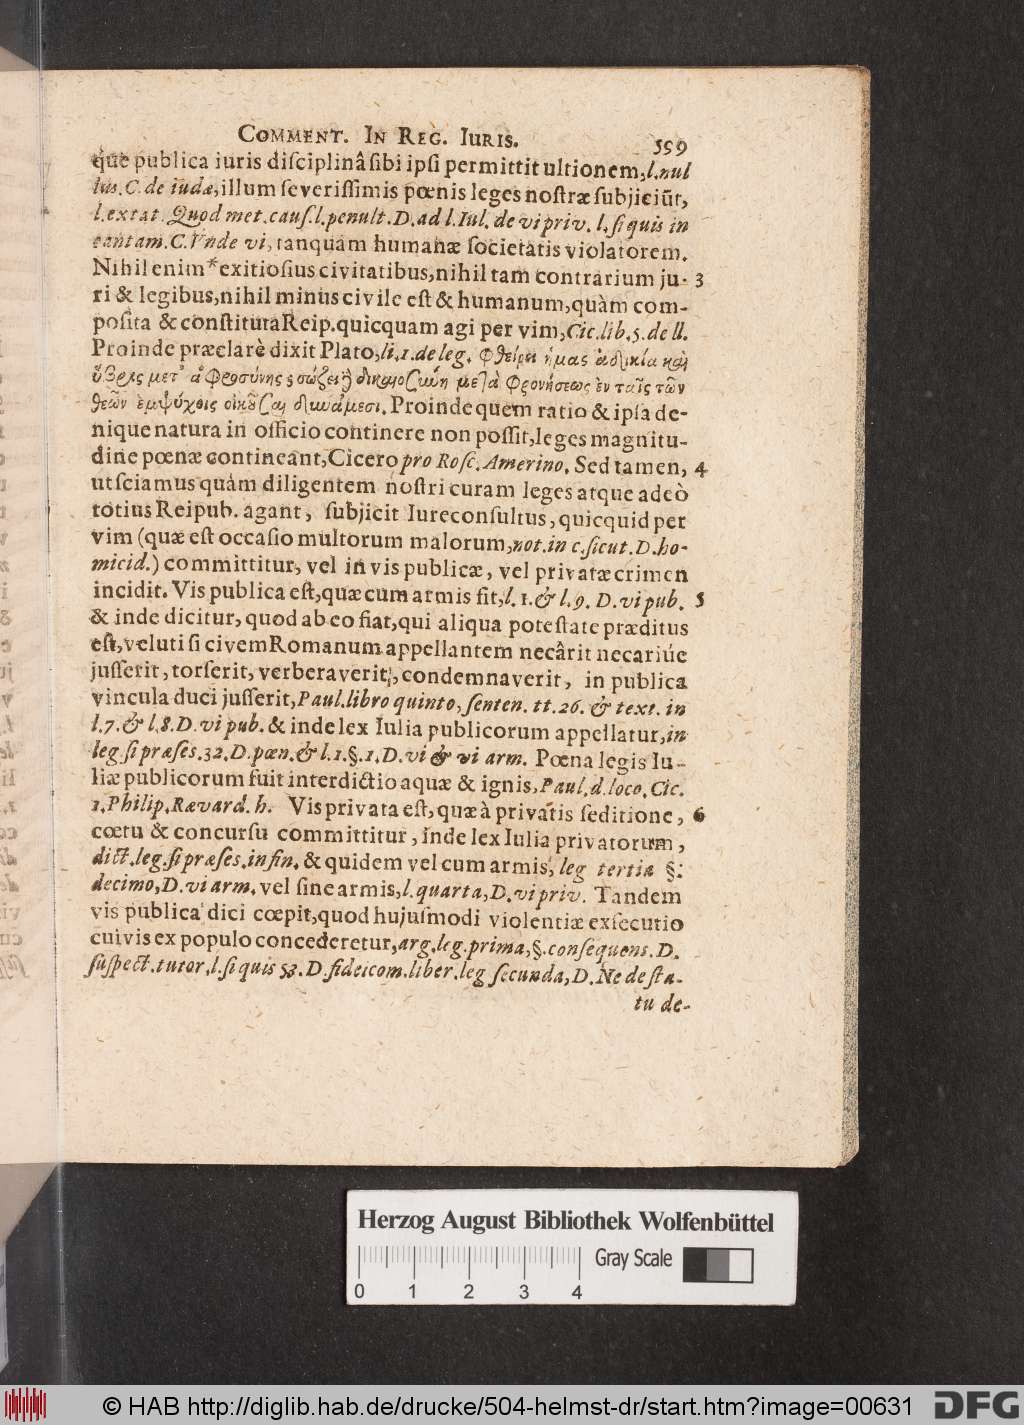 COMMENT. IN REG. IURIS. 599
que publica iuris diſciplinâ ſibi ipſi permittit ultionem, l. nul
lus. C. de iudæ, illum ſeveriſſimis pœnis leges noſtræ ſubjiciūt,
l. extat. Quod met. cauſ. l. penult. D. ad l. Iul. de vi priv. l. ſi quis in
tantam. C. Vnde vi, tanquam humanæ ſocietatis violatorem.
Nihil enim * exitioſius civitatibus, nihil tam contrarium ju- 3
ri & legibus, nihil minus civile eſt & humanum, quàm com-
poſita & conſtituta Reip. quicquam agi per vim, Cic. lib. 3. de ll.
Proinde præclarè dixit Plato, li. 1. de leg. φθείρει ἡμας ἀδικία καὶ
ὕβρις μετ' ἀφροσύνης σώζει δικαιοσύνη μετὰ φρονήσεως ἐν ταῖς τῶν
θεῶν ἐμψύχοις οἰκοῦσαι δυνάμεσι. Proinde quem ratio & ipſa de-
nique natura in officio continere non poſſit, leges magnitu-
dine pœnæ contineant, Cicero pro Roſc. Amerino. Sed tamen, 4
ut ſciamus quàm diligentem noſtri curam leges atque adeò
totius Reipub. agant, ſubjicit Iureconſultus, quicquid per
vim (quæ eſt occaſio multorum malorum, not. in c. ſicut. D. ho-
micid.) committitur, vel in vis publicæ, vel privatæ crimen
incidit. Vis publica eſt, quæ cum armis fit, l. 1. & l. 9. D. vi pub. 5
& inde dicitur, quod ab eo fiat, qui aliqua poteſtate præditus
eſt, veluti ſi civem Romanum appellantem necârit necariúe
juſſerit, torſerit, verberaverit, condemnaverit, in publica
vincula duci juſſerit, Paul. libro quinto, ſenten. tt. 26. & text. in
l. 7. & l. 8. D. vi pub. & inde lex Iulia publicorum appellatur, in
leg. ſi præſes. 32. D. pœn. & l. 1. §. 1. D. vi & vi arm. Pœna legis Iu-
liæ publicorum fuit interdictio aquæ & ignis, Paul. d. loco. Cic.
1. Philip. Rævard. h. Vis privata eſt, quæ à privatis ſeditione, 6
cœtu & concurſu committitur, inde lex Iulia privatorum,
dict. leg. ſi præſes. in fin. & quidem vel cum armis, leg tertia §.
decimo, D. vi arm. vel ſine armis, l. quarta, D. vi priv. Tandem
vis publica dici cœpit, quod hujuſmodi violentiæ exſecutio
cuivis ex populo concederetur, arg. leg. prima, §. conſequens. D.
ſuſpect. tutor, l. ſi quis 53. D. fideicom. liber. leg ſecunda, D. Ne de ſta-
tu de-
Herzog August Bibliothek Wolfenbüttel
Gray Scale
0 1 2 3 4
© HAB http://diglib.hab.de/drucke/504-helmst-dr/start.htm?image=00631
DFG